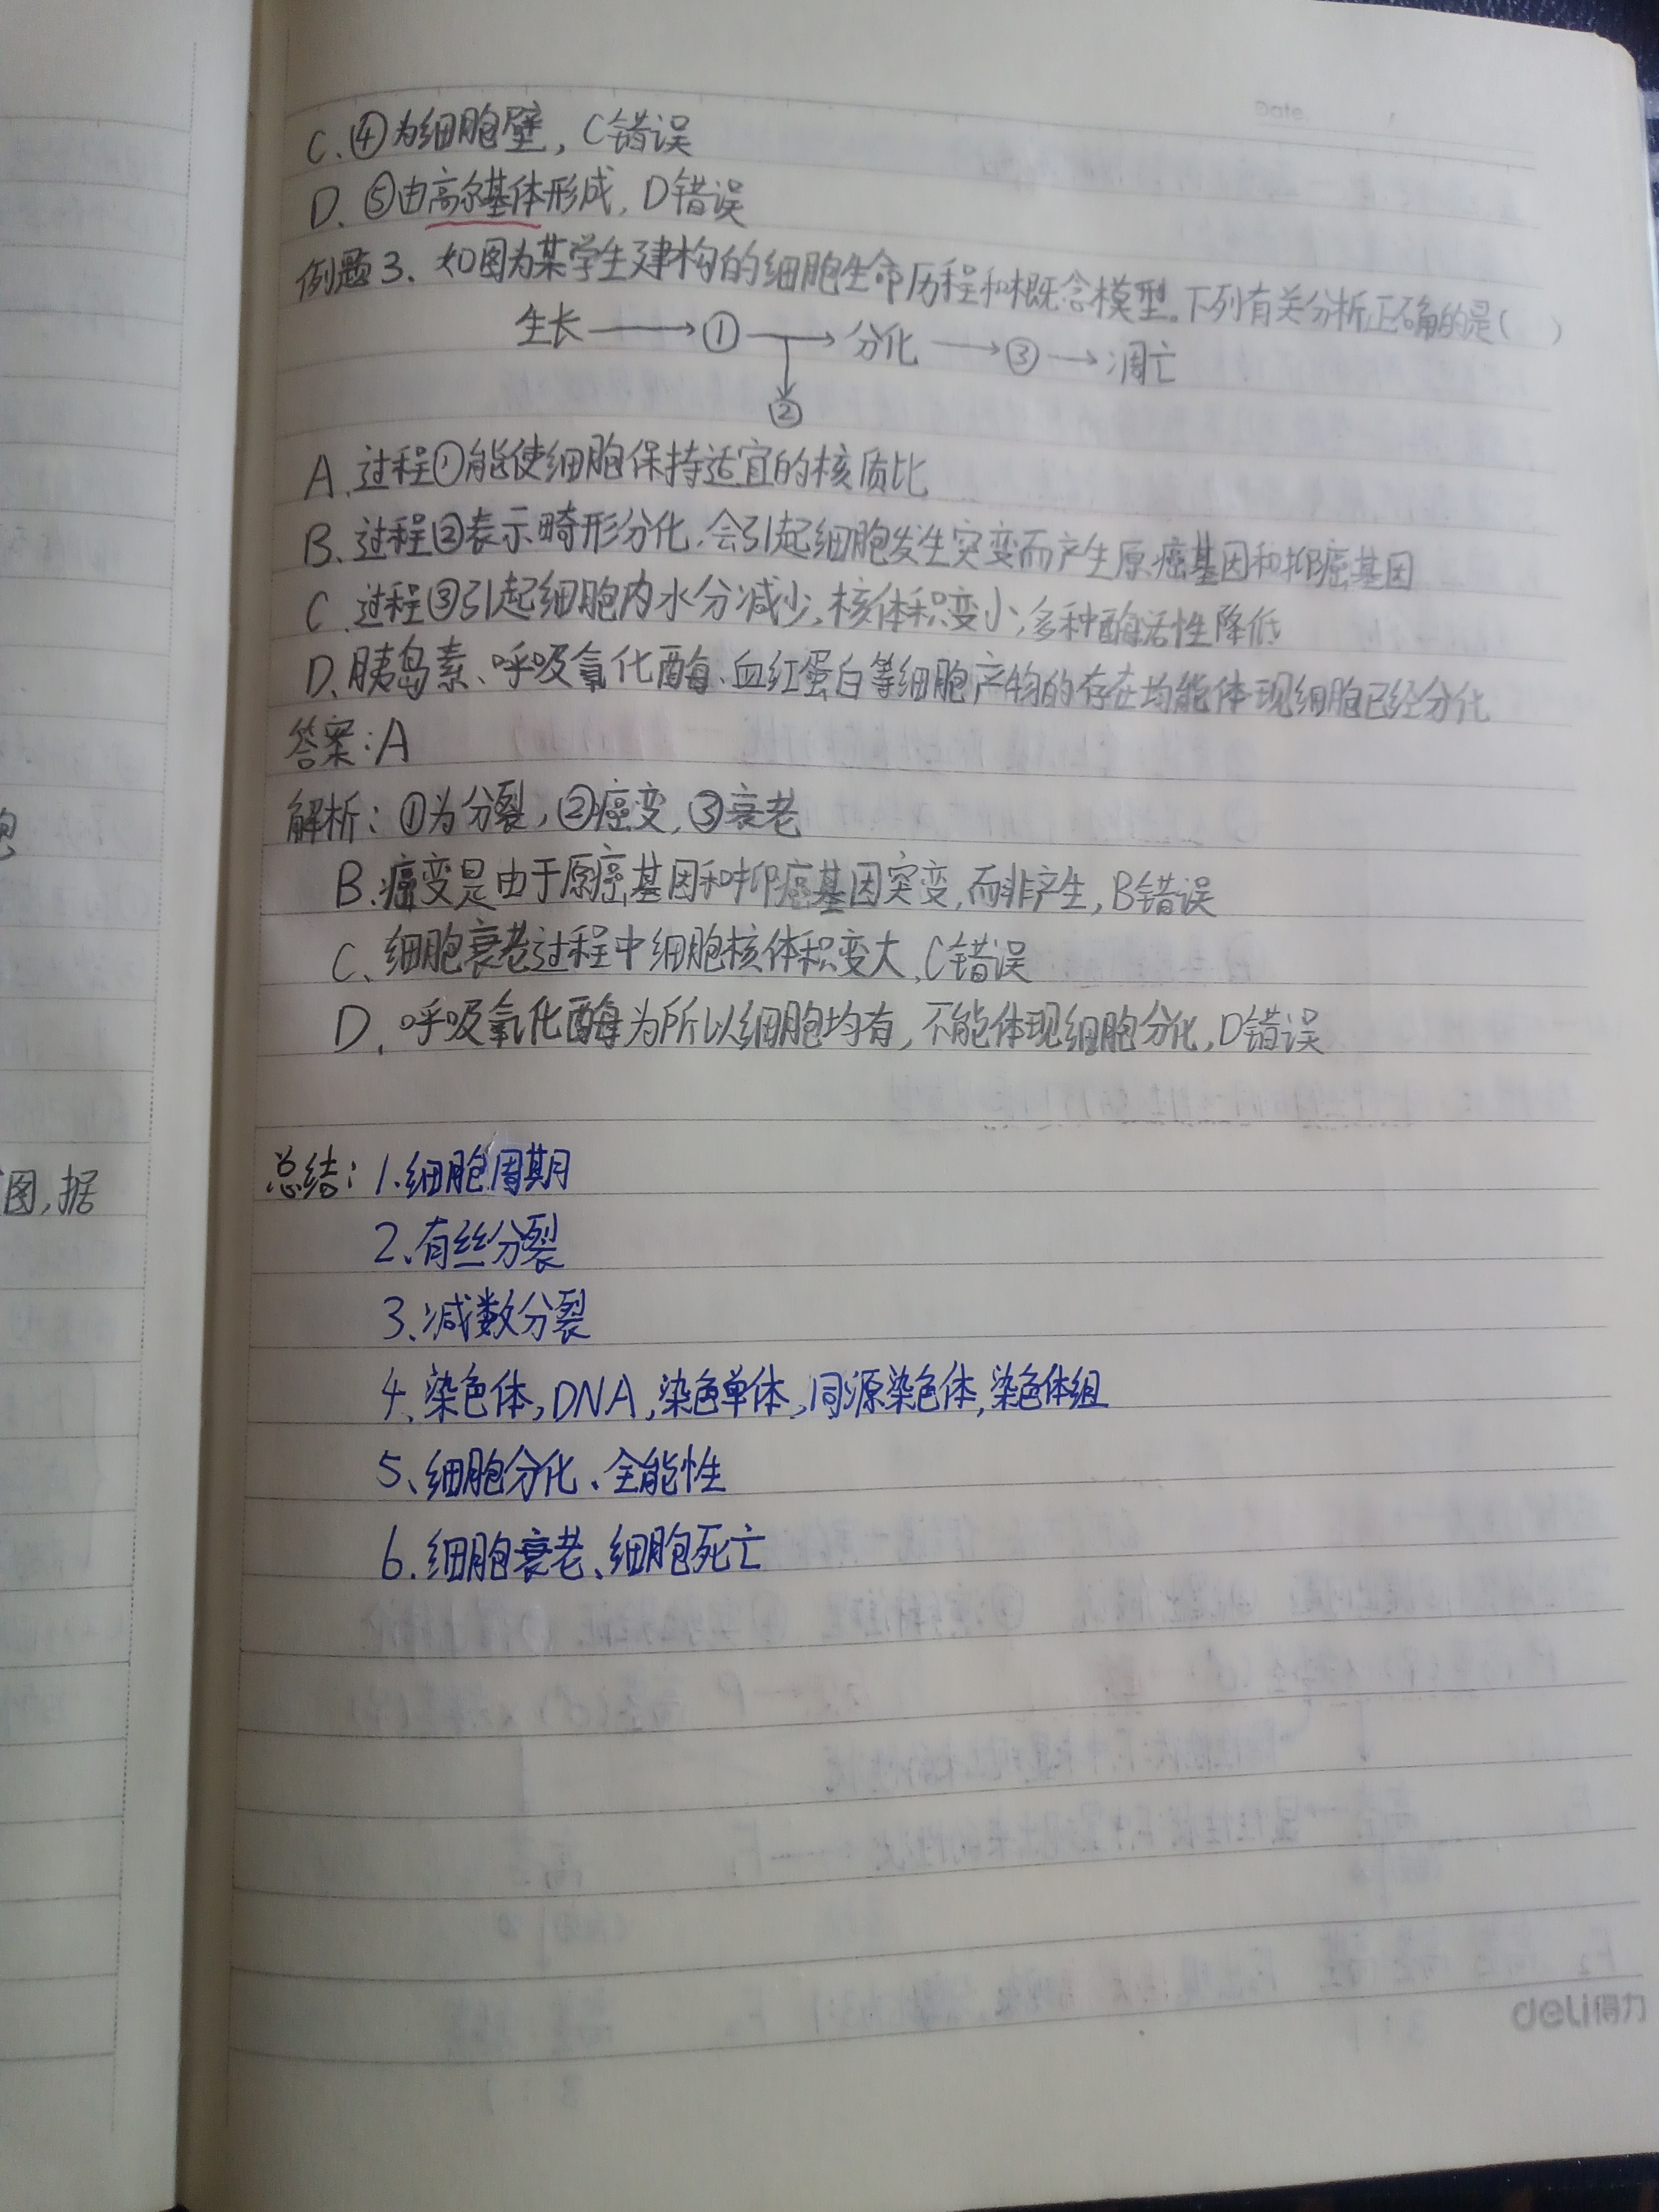 Date
C.④为细胞壁，C错误
D.⑤由高尔基体形成，D错误
例题3.如图为某学生建构的细胞生命历程和概念模型。下列有关分析正确的是( )
生长 → ① → 分化 → ③ → 凋亡
②
A.过程①能使细胞保持适宜的核质比
B.过程②表示畸形分化，会引起细胞发生突变而产生原癌基因和抑癌基因
C.过程③引起细胞内水分减少，核体积变小，多种酶活性降低
D.胰岛素、呼吸氧化酶、血红蛋白等细胞产物的存在均能体现细胞已经分化
答案：A
解析：①为分裂，②癌变，③衰老
B.癌变是由于原癌基因和抑癌基因突变，而非产生，B错误
C、细胞衰老过程中细胞核体积变大，C错误
D.呼吸氧化酶为所以细胞均有，不能体现细胞分化，D错误
图，据
总结：1.细胞周期
2、有丝分裂
3、减数分裂
4、染色体，DNA，染色单体，同源染色体，染色体组
5、细胞分化、全能性
6.细胞衰老、细胞死亡
deli得力